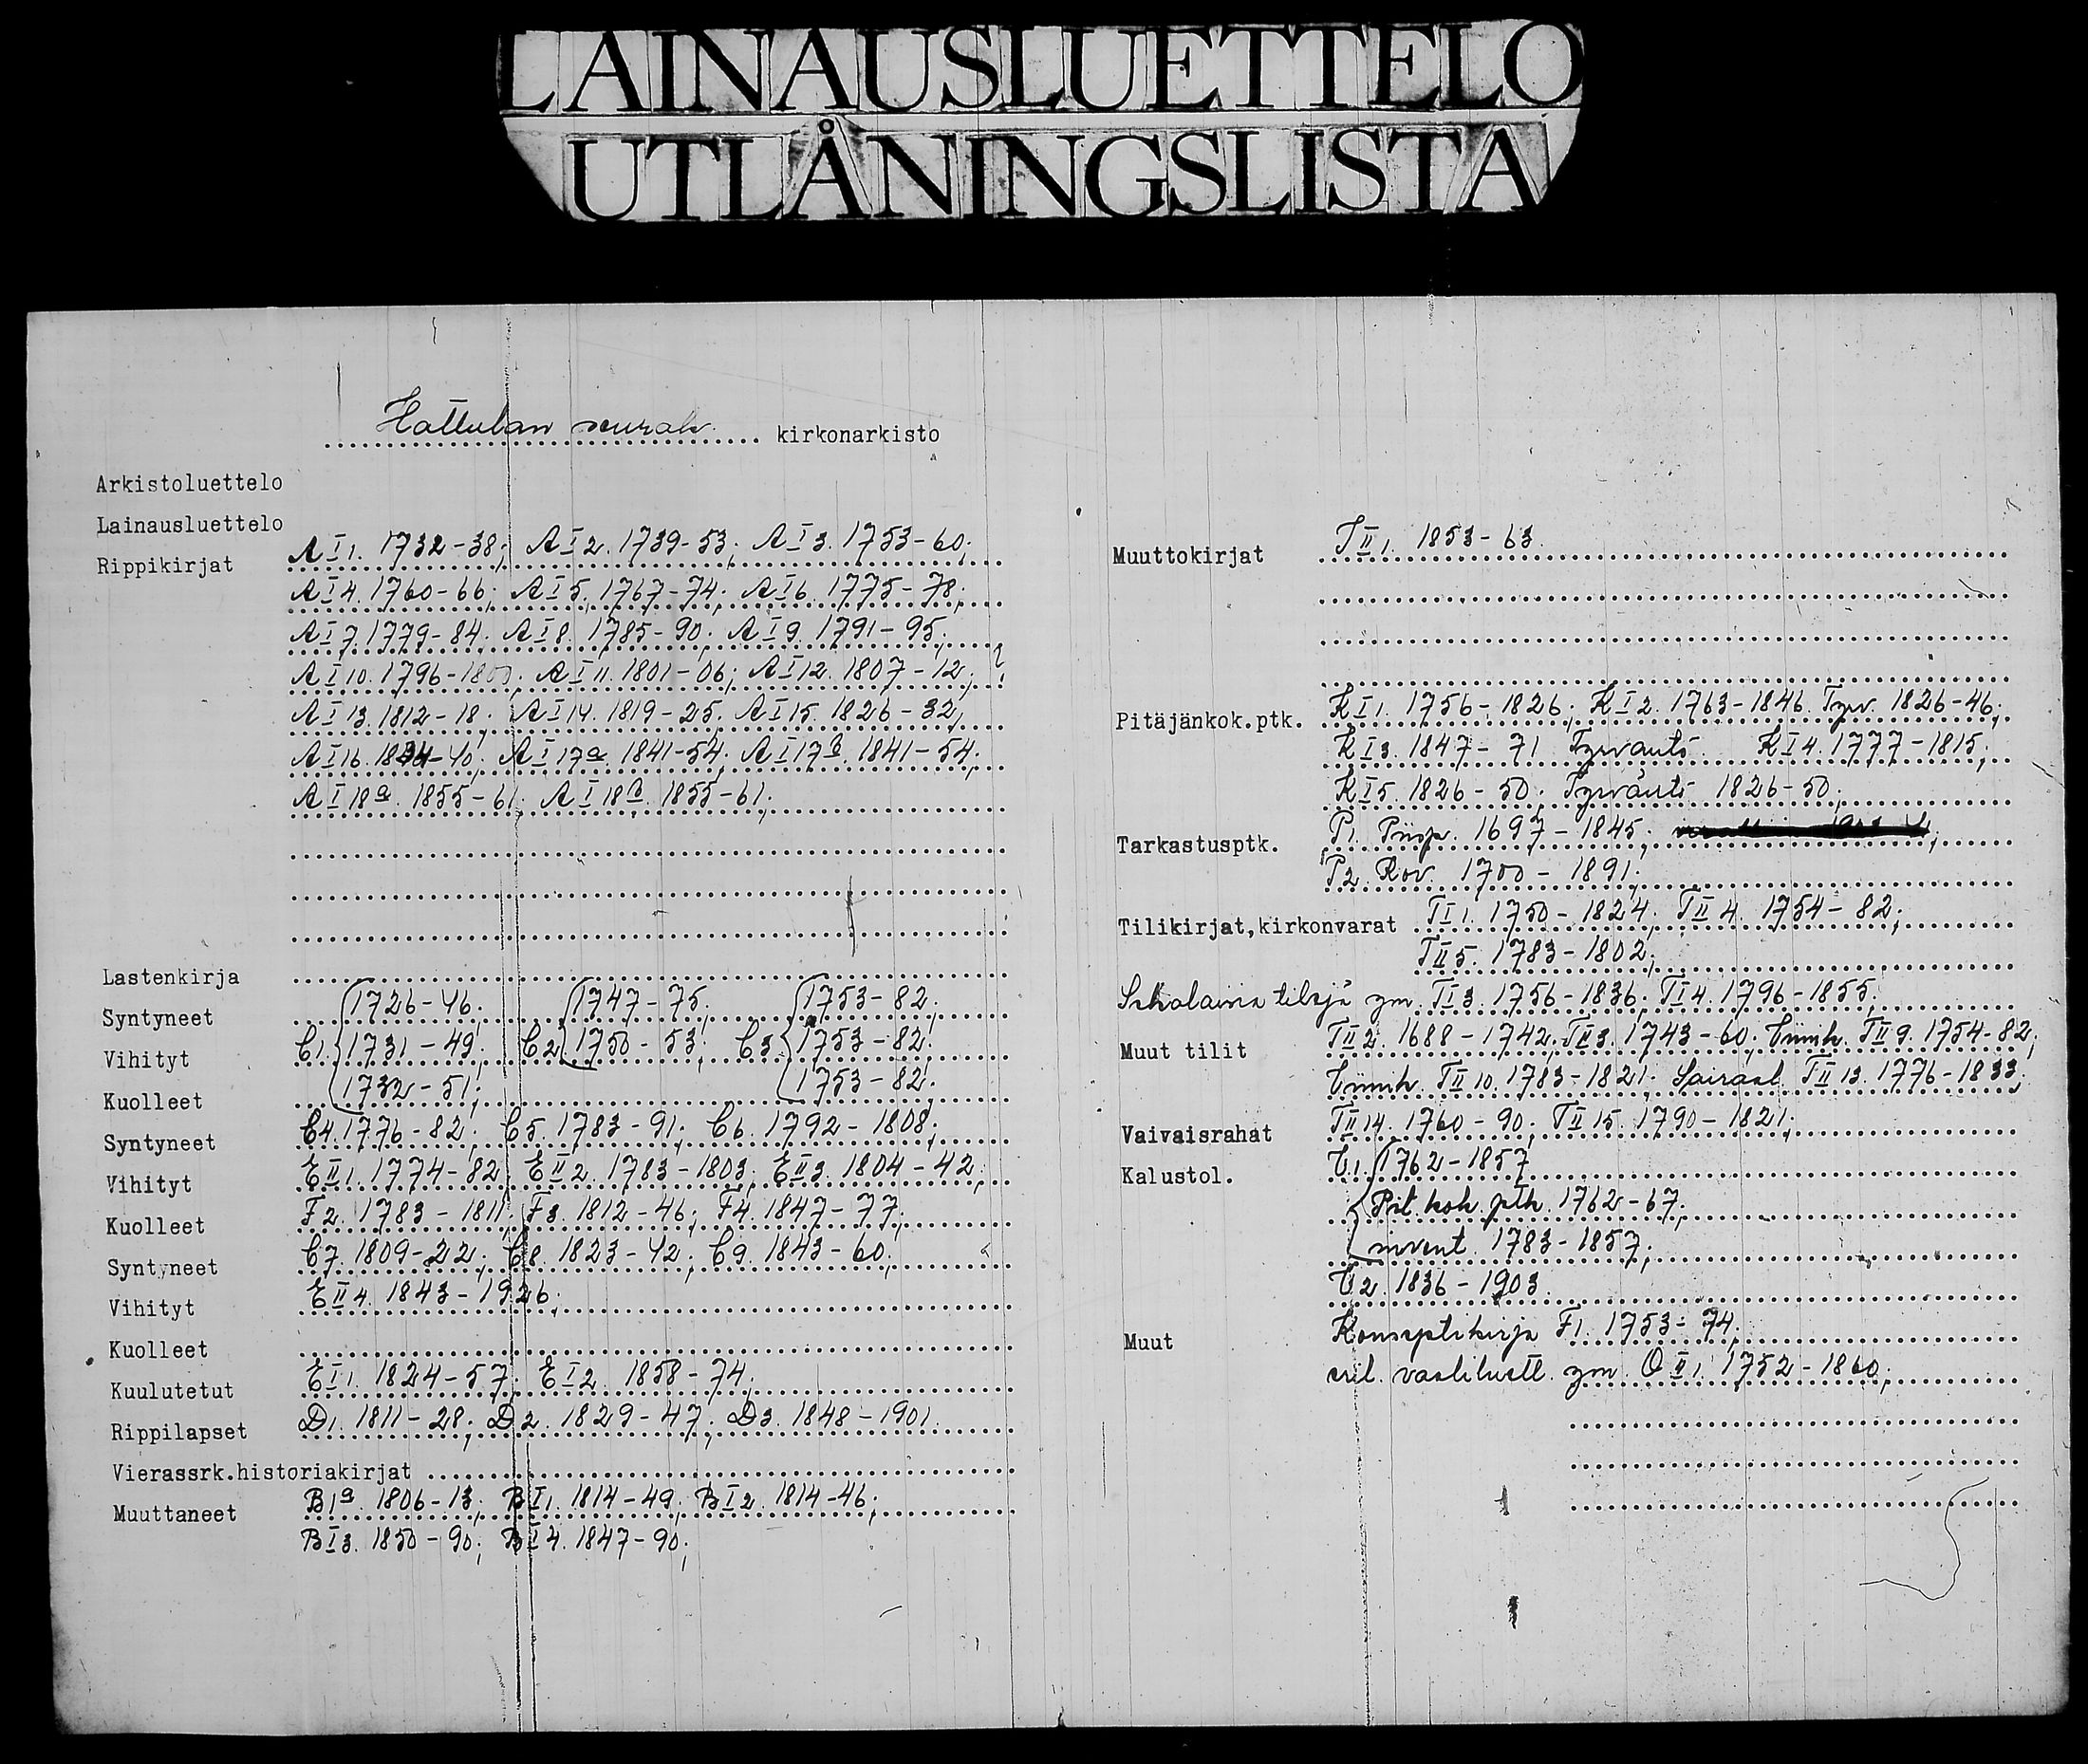 LAINAUSLUETTELO
UTLÅNINGSLISTA
Hattulan seurak. kirkonarkisto
Arkistoluettelo
Lainausluettelo
Rippikirjat A I 1. 1732-38; A I 2. 1739-53; A I 3. 1753-60;
A I 4. 1760-66; A I 5. 1767-74; A I 6. 1775-78;
A I 7. 1779-84; A I 8. 1785-90; A I 9. 1791-95;
A I 10. 1796-1800; A I 11. 1801-06; A I 12. 1807-12;
A I 13. 1812-18; A I 14. 1819-25; A I 15. 1826-32;
A I 16. 1834-40; A I 17a. 1841-54; A I 17b. 1841-54;
A I 18a. 1855-61; A I 18b. 1855-61;
Lastenkirja
Syntyneet 1726-46; 1747-75; 1753-82;
Vihityt C1. 1731-49; C2 1750-53; C3 1753-82;
Kuolleet 1732-51; 1753-82;
Syntyneet C4. 1776-82; C5. 1783-91; C6. 1792-1808;
Vihityt E II 1. 1774-82; E II 2. 1783-1803; E II 3. 1804-42;
Kuolleet F2. 1783-1811; F3. 1812-46; F4. 1847-77;
Syntyneet C7. 1809-22; C8. 1823-42; C9. 1843-60;
Vihityt E II 4. 1843-1926;
Kuolleet
Kuulutetut E I 1. 1824-57; E I 2. 1858-74;
Rippilapset D1. 1811-28; D2. 1829-47; D3. 1848-1901.
Vierassrk.historiakirjat
Muuttaneet B1a. 1806-13; B I 1. 1814-49; B I 2. 1814-46;
B I 3. 1850-90; B I 4. 1847-90;
Muuttokirjat J II 1. 1853-63.
Pitäjänkok.ptk. K I 1. 1756-1826; K I 2. 1763-1846. Tyrv. 1826-46;
K I 3. 1847-71 Tyrväntö. K I 4. 1777-1815;
K I 5. 1826-50; Tyrväntö 1826-50;
Tarkastusptk. P1. Piisp. 1697-1845;
P2. Rov. 1700-1891;
Tilikirjat,kirkonvarat T I 1. 1750-1824; T II 4. 1754-82;
T II 5. 1783-1802;
tilejä ym. T I 3. 1756-1836; T I 4. 1796-1855;
Muut tilit T II 2. 1688-1742; T II 3. 1743-60; T II 9. 1754-82;
T II 10. 1783-1821; Sairaal. T II 13. 1776-1833;
Vaivaisrahat T II 14. 1760-90; T II 15. 1790-1821;
Kalustol. U1. 1762-1857
Pit. kok. ptk. 1762-67;
invent. 1783-1857;
U2. 1836-1903.
Muut Konseptikirja F1. 1753-74;
vaaliluett. ym. O II 1. 1752-1860;